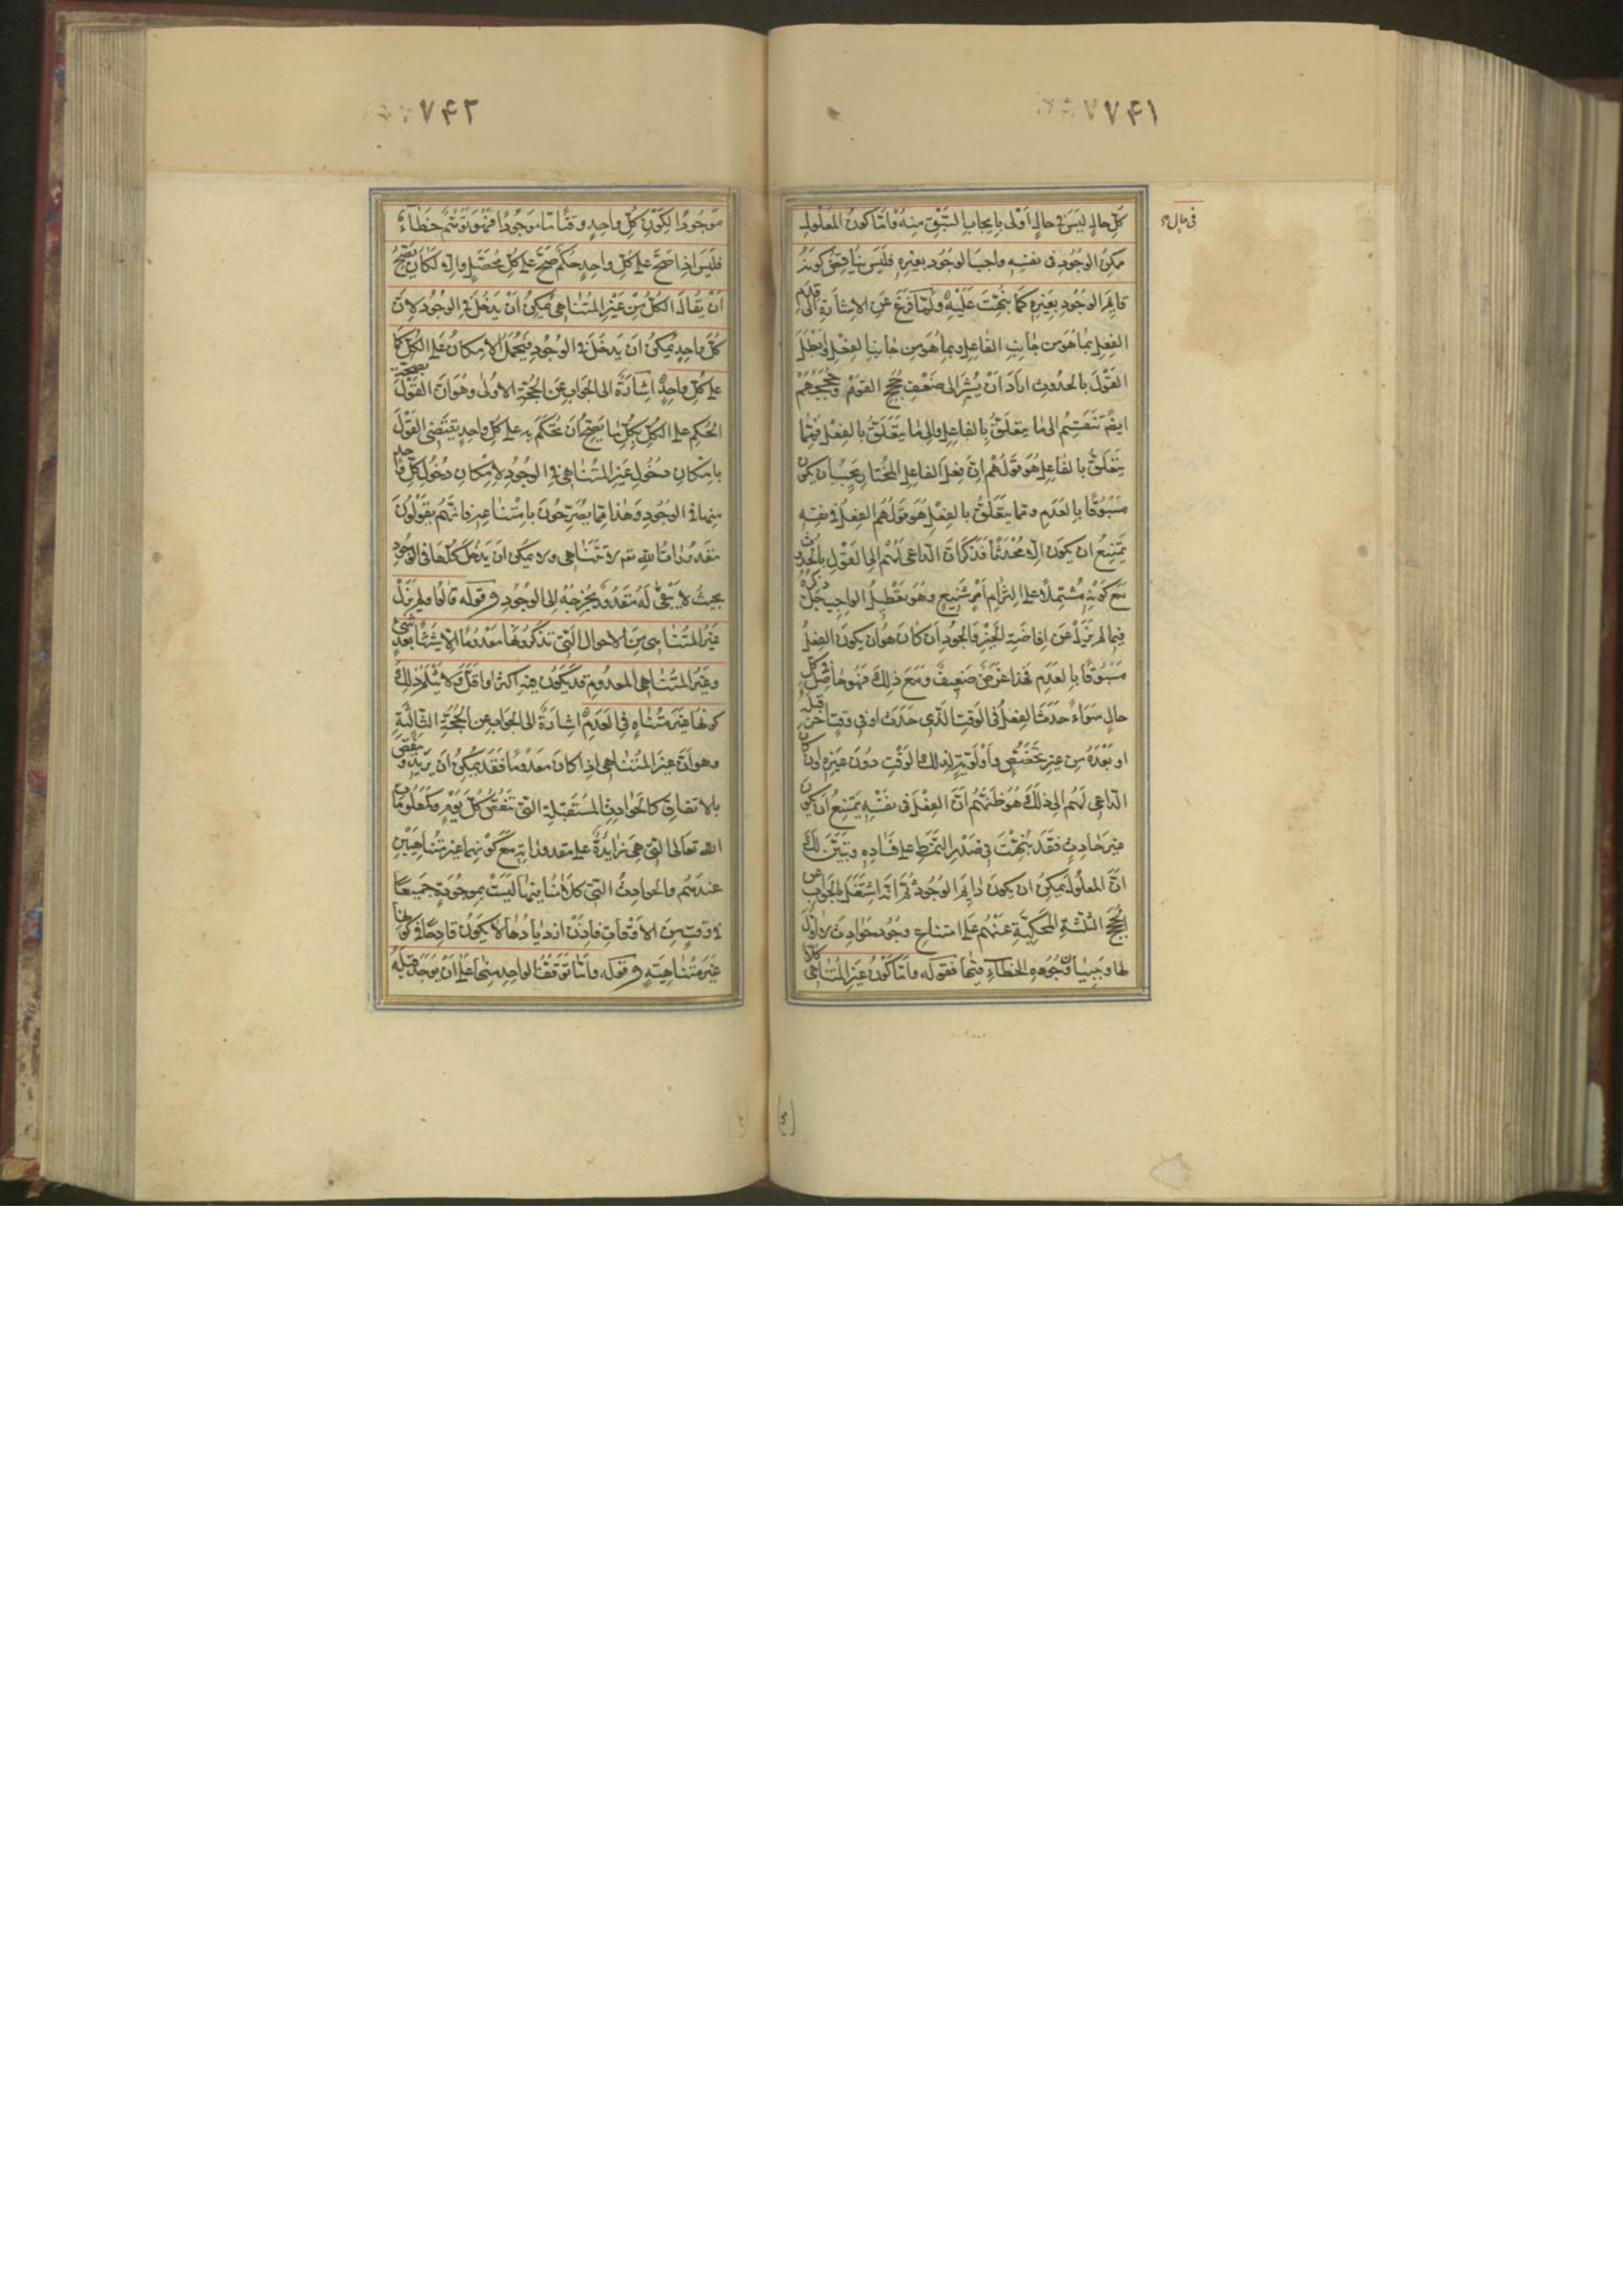 ۷۴۱
كلّ حالٍ ليس فى حالٍ اَولى بايجاب السَّبْق منه وامّا كونُ المعلول
فى حال
ممكنَ الوجُود فى نفسه واجبَ الوجُود بغيره فليس يُنافى كونَه
دايمَ الوجُود بغيره كما نُبّهتَ عليه ولمّا فرغ عن الاشارة الى قدم
الفعل بما هو من جانب الفاعل وبما هو من جانب الفعل وابطل
القول بالحدوث اراد اَنْ يُشير الى ضعف حُجج القوم وحججهم
ايضًا تنقسم الى ما يتعلّق بالفاعل والى ما يتعلّق بالفعل فممّا
يتعلّق بالفاعل هو قولهم انّ فعل الفاعل المختار يجب ان يكون
مسبُوقًا بالعدم وممّا يتعلّق بالفعل هو قولهم الفعل فى نفسه
يَمتنعُ ان يكون الّا مُحْدَثًا فذكر انّ الداعى لهم الى القول بالحدوث
مع كونه مشتملًا على التزام امرٍ شنيعٍ وهو تعطيلُ الواجب جلّ ذكره
فيما لم يزل عن افاضة الخير والجُود ان كان هو ان يكون الفعلُ
مسبوقًا بالعدم فهذا غرضٌ ضعيفٌ ومع ذلك فهو حاصل فى كلّ
حالٍ سواءٌ حدث الفعلُ فى الوقت الذى حدث او فى وقتٍ آخر قبله
او بعدَهُ من غير تخصّصٍ واَوْلَويّةٍ لذلك الوقت دون غيره وان كان
الداعى لهم الى ذلك هو ظنّهم اَنّ الفعل فى نفسه يمتنع ان يكون
غير حادثٍ فقد نُبّهتَ فى صدر النمط على فساده وتبيّن لك
انّ المعلُول يمكن ان يكون دايم الوجُود ثمّ انّه اشتغل بالجواب عن
الحجج الثلثة المحكيّة عنهم على امتناع وجُود حوادث لا اوّل
لها وبيّن وجُوه الخطاء فيها فقوله وامّا كون غير المتناهى كُلًّا
۷۴۲
موجُودًا لكون كلّ واحدٍ وقتًا ما موجُودًا فهو توهُّم خطاءٌ
فليس اذا صحّ على كلّ واحدٍ حكمٌ صحّ على كلّ محصَّلٍ والّا لكان يصحّ
اَنْ يُقال الكلّ من غير المتناهى يمكنُ اَنْ يدخُل فى الوجُود لانّ
كلّ واحدٍ يمكن ان يدخُل فى الوجُود فيُحمل الامكانُ على الكلّ كما
على كلّ واحدٍ اشارةٌ الى الجواب عن الحُجّة الاولى وهو انّ القول بصحّة
الحكم على الكلّ بكلّ ما يصحّ ان يُحكم به على كلّ واحدٍ يقتضى القول
بامكان دخُول غير المتناهى فى الوجُود لامكان دخُول كلّ واحد
منها فى الوجُود وهذا ممّا يصرّحُون بامتناعه فانّهم يقولُون
مقدُورات الله تع لا تتناهى ولا يمكن ان يدخُل كلّها فى الوجود
بحيثُ لا يبقى له مقدُورٌ يُخرجه الى الوجُود وقوله قالوا ولم يزل
غيرُ المتناهى من الاحوال التى تذكرُونها معدُومًا الّا شيئًا بعد شئ
وغيرُ المتناهى المعدوم قد يكُون فيه اكثر واقلّ ولا يثلم ذلك
كونها غير متناهٍ فى العدم اشارةٌ الى الجواب عن الحجّة الثالثة
وهو انّ غير المتناهى اذا كان معدُومًا فقد يمكن ان يزيد وينقص
بالاتفاق كالحوادث المستقبلة التى تنقص كلّ يومٍ وكمعلُومات
الله تعالى التى هى زايدةٌ على مقدوراته مع كونهما غير متناهيين
عندهم والحوادثُ التى كلامُنا فيها ليست بموجُودةٍ جميعًا
فى وقتٍ من الاوقات فاذن ازديادها لا يكُون قادحًا فى كونها
غير متناهيةٍ وقوله وامّا توقّف الواحد منها على ان يوجد قبله